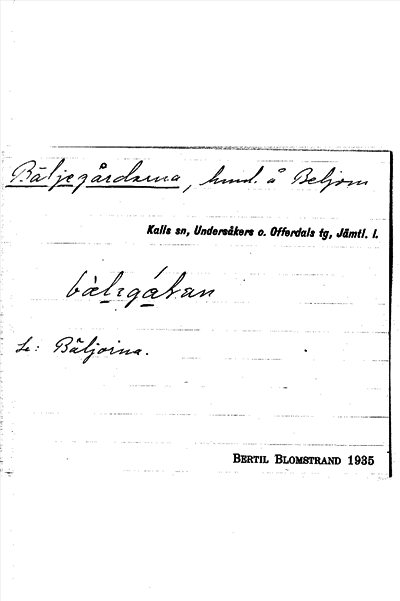 Bäljegårdarna, hmd. å Beljom
Kalls sn, Undersåkers o. Offerdals tg, Jämtl. l.
Se: Bäljoina.
BERTIL BLOMSTRAND 1935